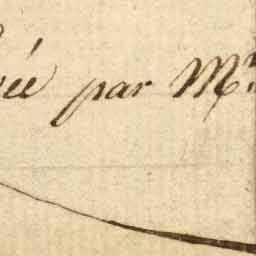 ée par Mr